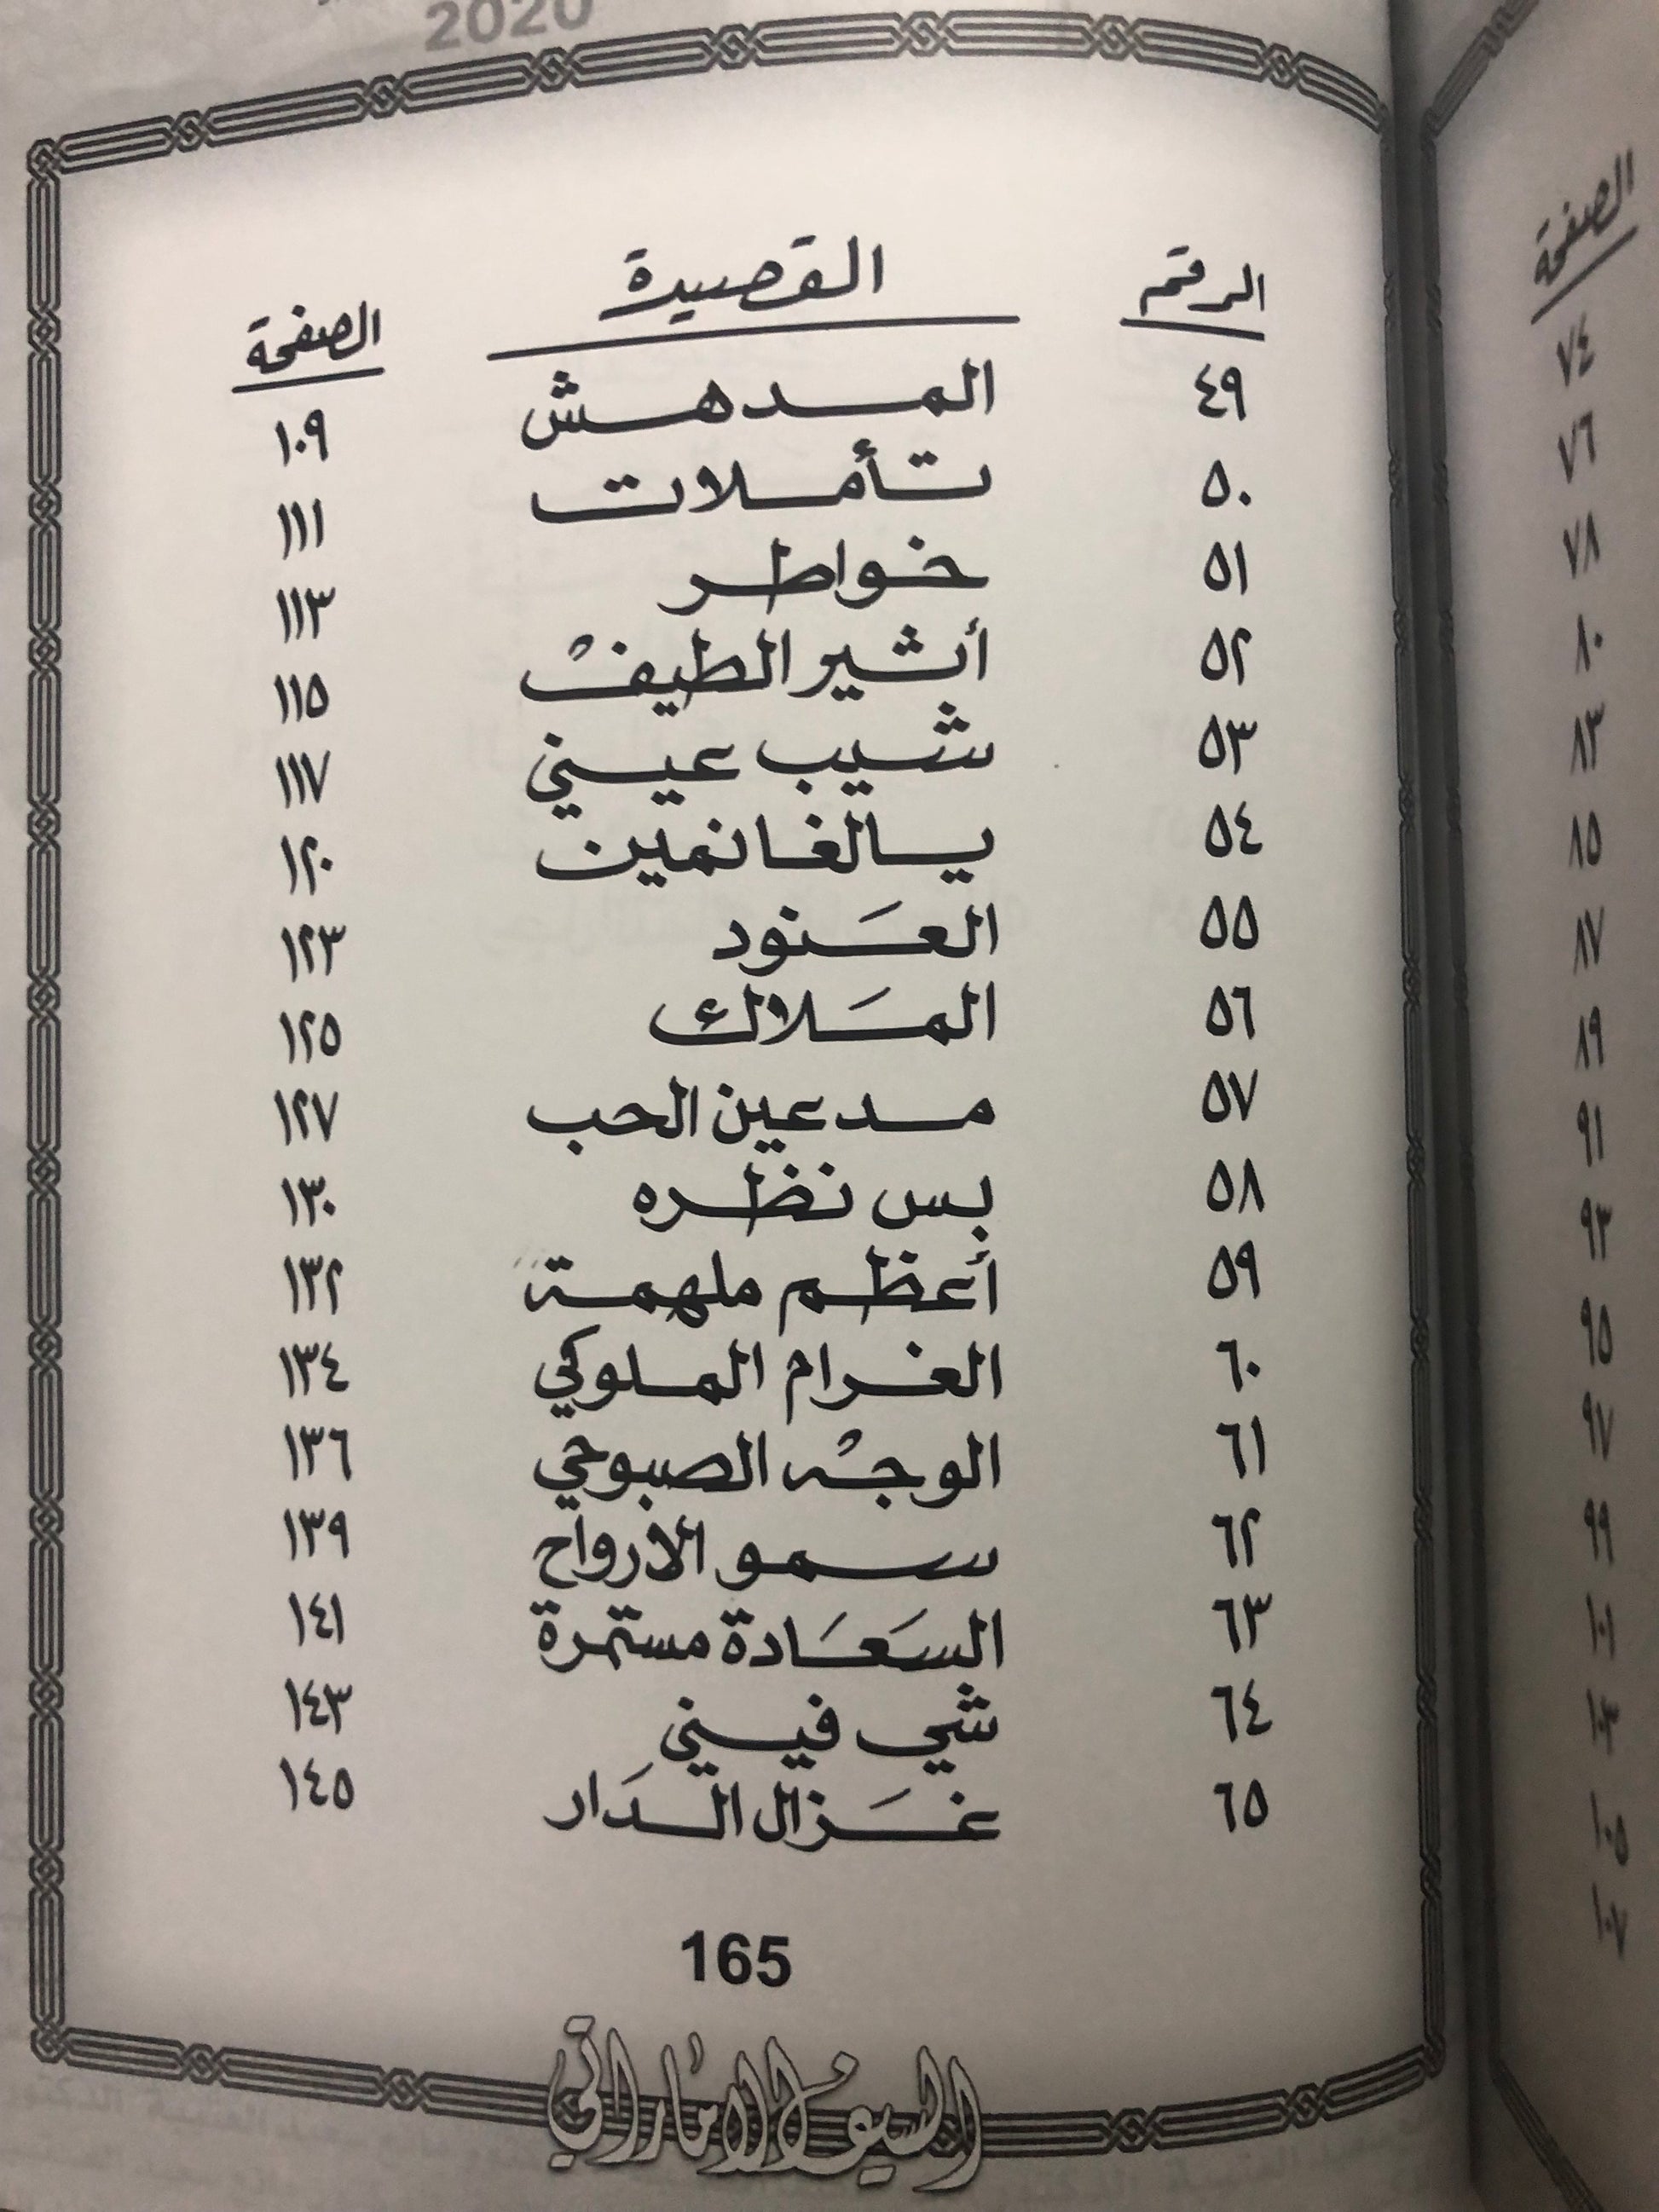 2020
الرقم القصيدة الصفحة
٤٩ المدهش ١٠٩
٥٠ تأملات ١١١
٥١ خواطر ١١٣
٥٢ أثير الطيفْ ١١٥
٥٣ شيب عيني ١١٧
٥٤ يالغانمين ١٢٠
٥٥ العَنود ١٢٣
٥٦ المَلاك ١٢٥
٥٧ مدعين الحب ١٢٧
٥٨ بس نظره ١٣٠
٥٩ أعظم ملهمة ١٣٢
٦٠ الغرام الملوكي ١٣٤
٦١ الوجْه الصبوحي ١٣٦
٦٢ سمو الأرواح ١٣٩
٦٣ السَعَادة مستمرة ١٤١
٦٤ شي فيني ١٤٣
٦٥ غَزال الدَار ١٤٥
165
السيف الاماراتي
الصفحة
٧٤
٧٦
٧٨
٨٠
٨٣
٨٥
٨٧
٨٩
٩١
٩٣
٩٥
٩٧
٩٩
١٠١
١٠٣
١٠٥
١٠٧